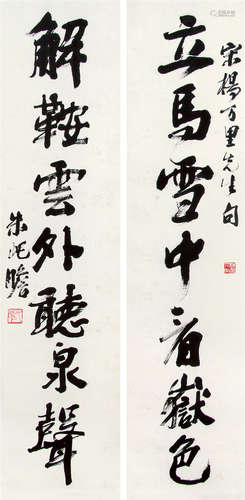 宋楊万里先生句
立馬雪中看嶽色
解鞍雲外聽泉聲
朱屺瞻